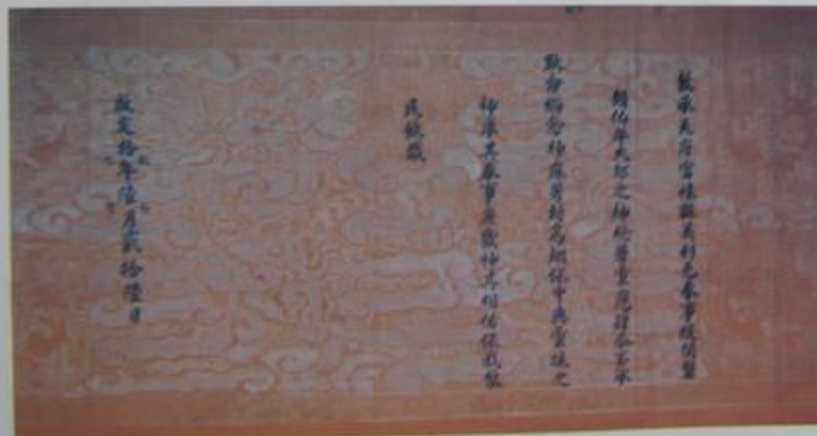 敕承天府富榮縣美利邑奉事
大郎之神稔著靈應肆今丕承
耿命緬念神庥著封為翊保中興靈扶之
神準其奉事庶幾神其相佑保我黎
民欽哉
啟定拾年陸月貳拾陸日